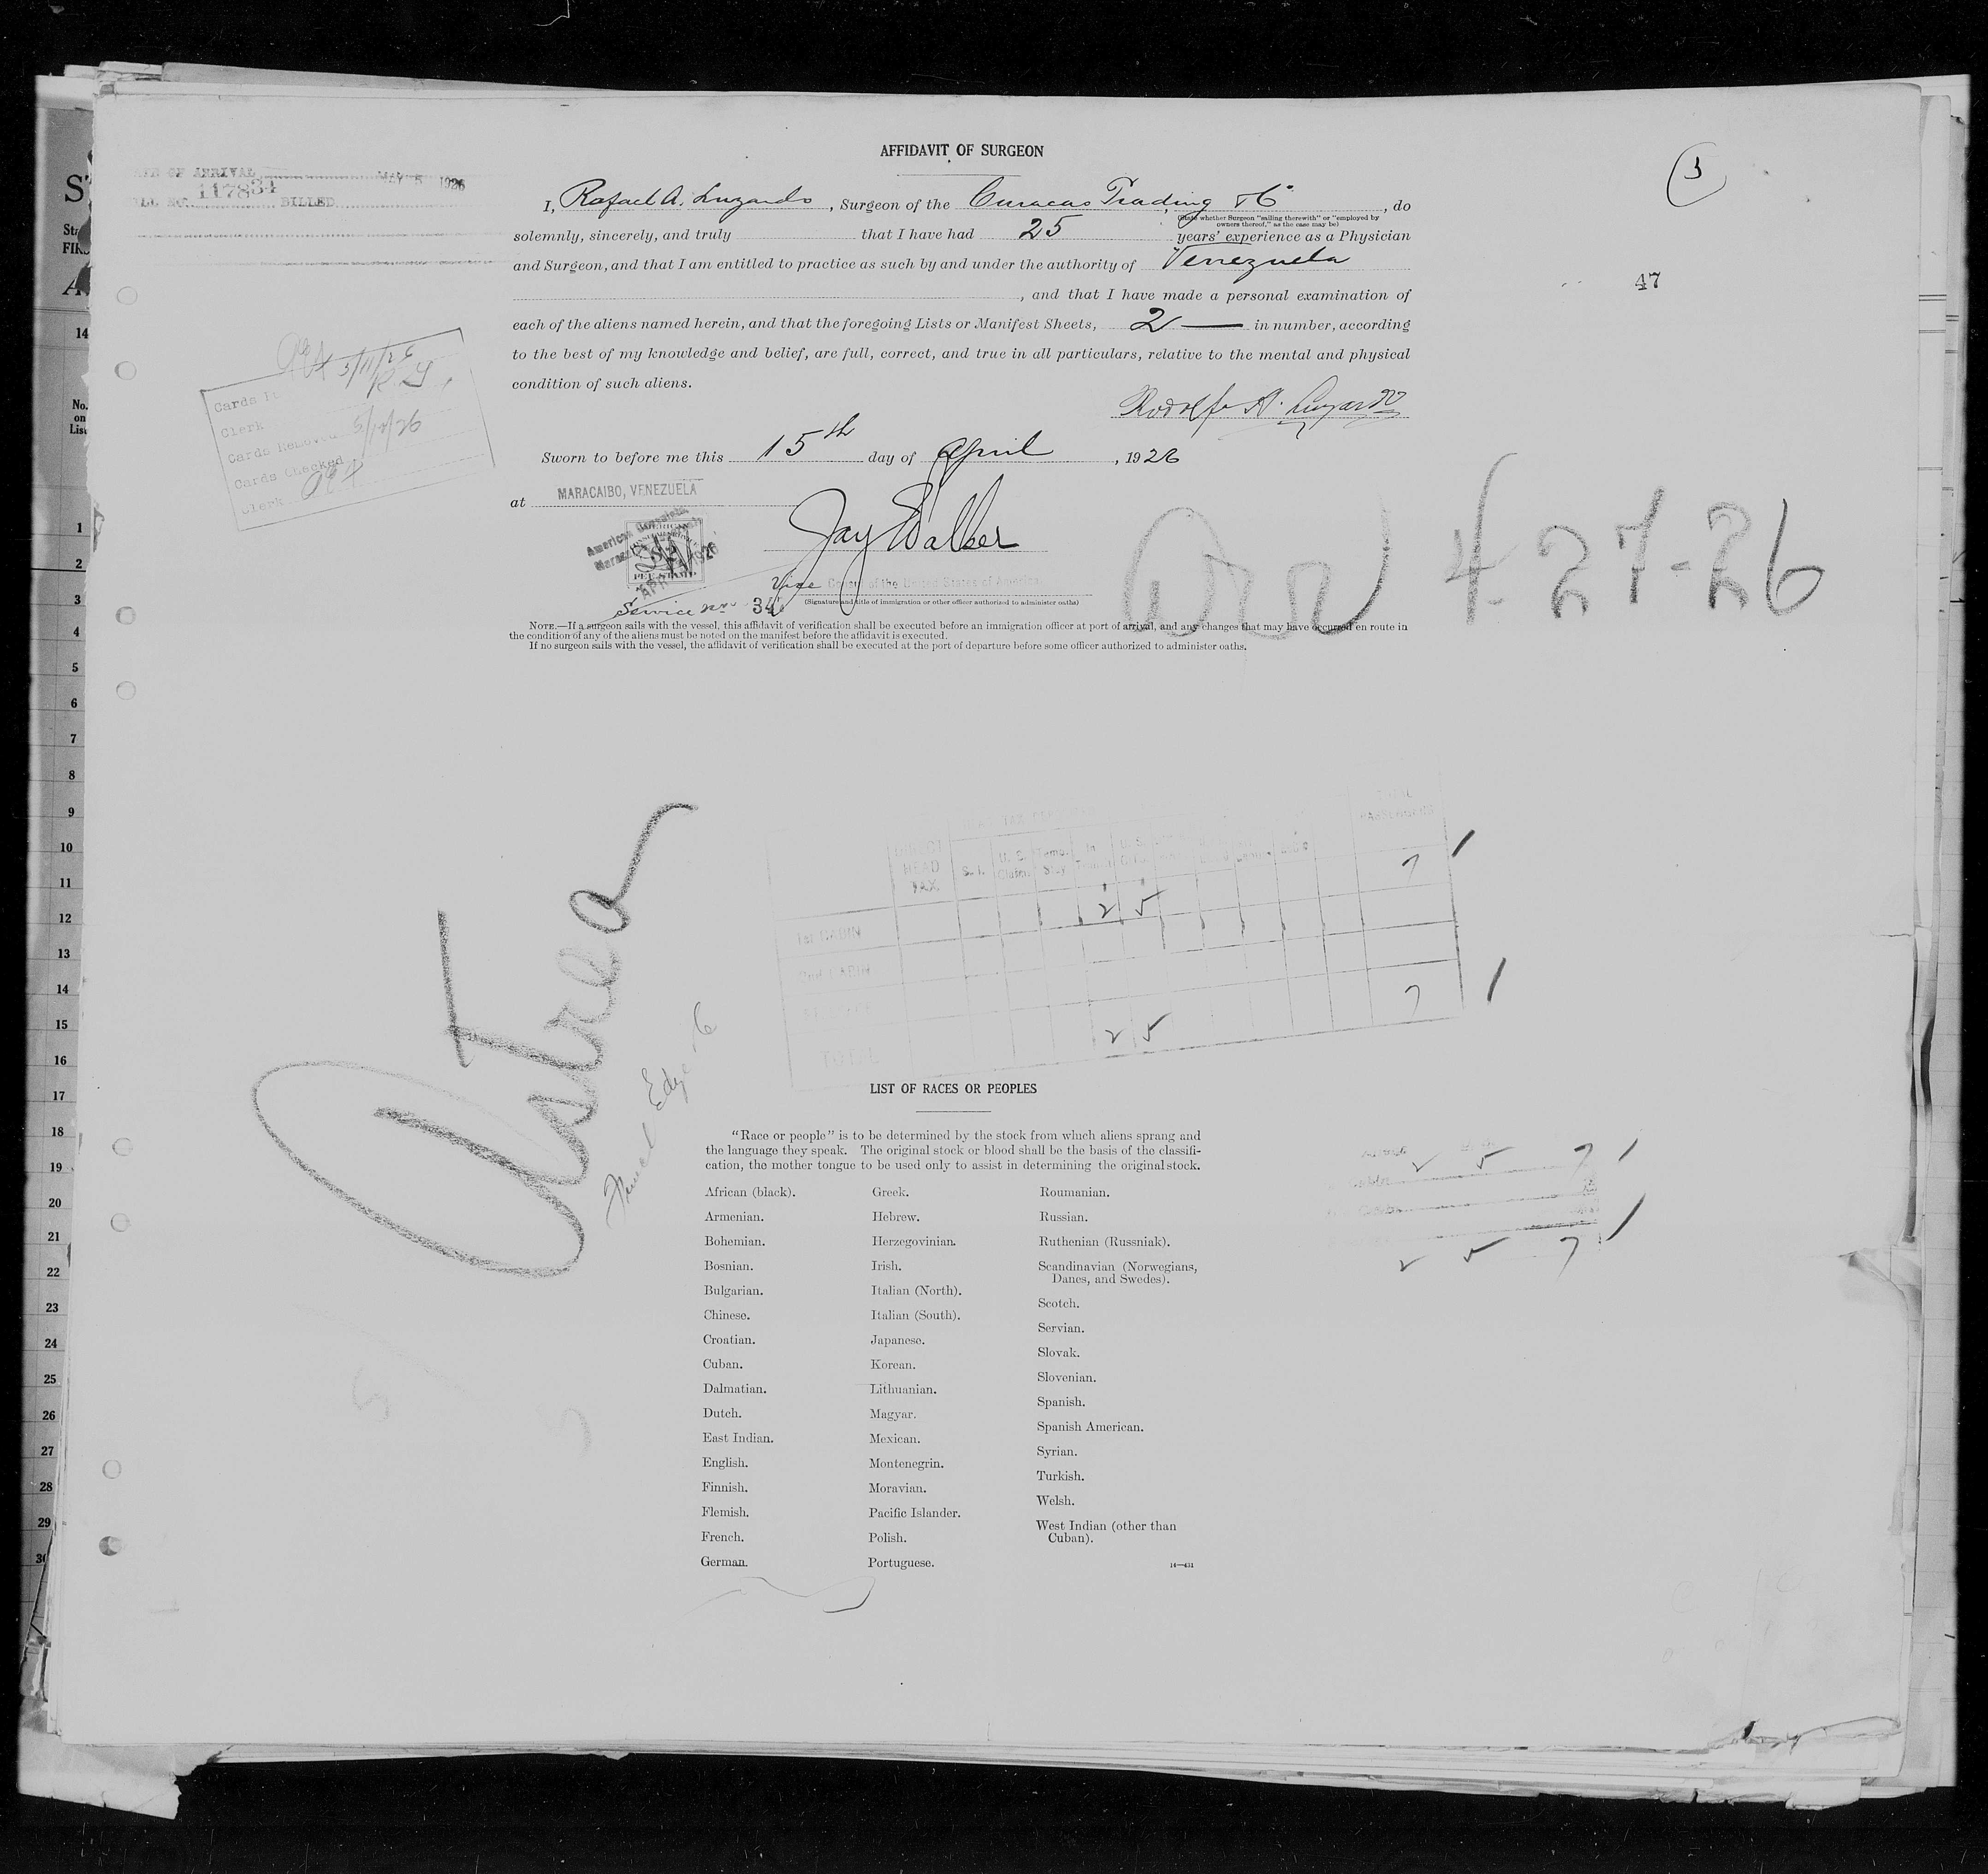 AFFIDAVIT OF SURGEON
3
OF ARRIVAL MAY 5 1926
NO. 117834 BILLED
I, Rafael A. Luzardo, Surgeon of the Curacao Trading & Co, do
(State whether Surgeon "sailing therewith" or "employed by
owners thereof," as the case may be)
solemnly, sincerely, and truly that I have had 25 years' experience as a Physician
and Surgeon, and that I am entitled to practice as such by and under the authority of Venezuela
, and that I have made a personal examination of
47
each of the aliens named herein, and that the foregoing Lists or Manifest Sheets, 2 — in number, according
to the best of my knowledge and belief, are full, correct, and true in all particulars, relative to the mental and physical
condition of such aliens.
Rodolfo A. Luzardo
5/11/26
Cards
Clerk
Cards Removed 5/12/26
Cards Checked
Clerk
Sworn to before me this 15th day of April, 1926
at MARACAIBO, VENEZUELA
Jay Walker
American Consulate
AMERICAN
PER STAMP
APR 1926
Vice Consul of the United States of America
Service No. 34
(Signature and title of immigration or other officer authorized to administer oaths)
Arr 4-27-26
NOTE.—If a surgeon sails with the vessel, this affidavit of verification shall be executed before an immigration officer at port of arrival, and any changes that may have occurred en route in
the condition of any of the aliens must be noted on the manifest before the affidavit is executed.
If no surgeon sails with the vessel, the affidavit of verification shall be executed at the port of departure before some officer authorized to administer oaths.
Astrea
DIRECT HEAD TAX S. I. U. S. Claim Temp. Stay In
PASSENGERS
1st CABIN 2 5 7 1
2nd CABIN
TOTAL 2 5 7 1
LIST OF RACES OR PEOPLES
"Race or people" is to be determined by the stock from which aliens sprang and
the language they speak. The original stock or blood shall be the basis of the classifi-
cation, the mother tongue to be used only to assist in determining the original stock.
2 5 7 1
2 5 7 1
African (black).
Armenian.
Bohemian.
Bosnian.
Bulgarian.
Chinese.
Croatian.
Cuban.
Dalmatian.
Dutch.
East Indian.
English.
Finnish.
Flemish.
French.
German.
Greek.
Hebrew.
Herzegovinian.
Irish.
Italian (North).
Italian (South).
Japanese.
Korean.
Lithuanian.
Magyar.
Mexican.
Montenegrin.
Moravian.
Pacific Islander.
Polish.
Portuguese.
Roumanian.
Russian.
Ruthenian (Russniak).
Scandinavian (Norwegians,
Danes, and Swedes).
Scotch.
Servian.
Slovak.
Slovenian.
Spanish.
Spanish American.
Syrian.
Turkish.
Welsh.
West Indian (other than
Cuban).
14—431
14
No.
on
List
1
2
3
4
5
6
7
8
9
10
11
12
13
14
15
16
17
18
19
20
21
22
23
24
25
26
27
28
29